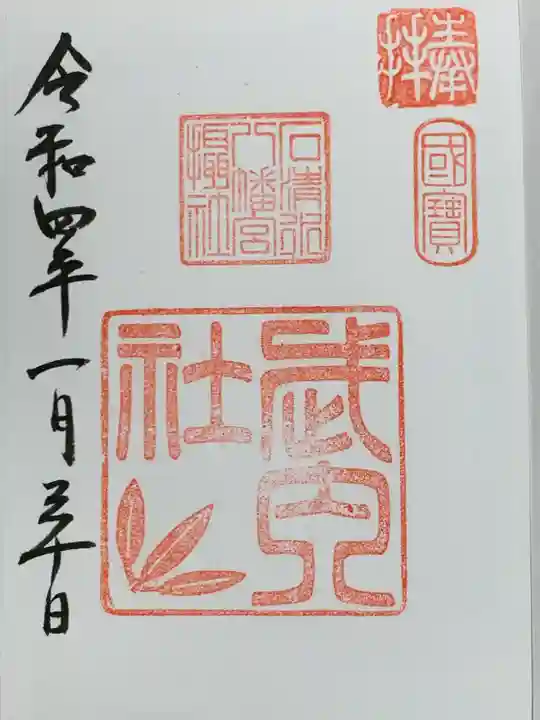 奉拝
國寶
石清水
八幡宮
攝社
武内
社
令和四年一月三十日